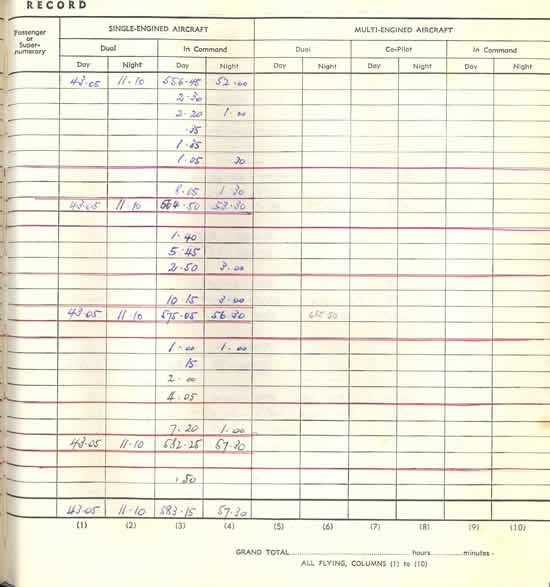 RECORD
Passenger or Super-numerary SINGLE-ENGINED AIRCRAFT MULTI-ENGINED AIRCRAFT
Dual In Command Dual Co-Pilot In Command
Day Night Day Night Day Night Day Night Day Night
43·05 11·10 556·45 52·00
2·30
2·20 1·00
·35
1·35
1·05 30
8·05 1·30
43·05 11·10 564·50 53·30
1·40
5·45
2·50 3·00
10 15 3·00
43·05 11·10 575·05 56 30 685 50
1·00 1·00
15
2·00
4·05
7·20 1·00
43·05 11·10 582·25 57·30
·50
43·05 11·10 583·15 57·30
(1) (2) (3) (4) (5) (6) (7) (8) (9) (10)
GRAND TOTAL hours minutes
ALL FLYING, COLUMNS (1) to (10)